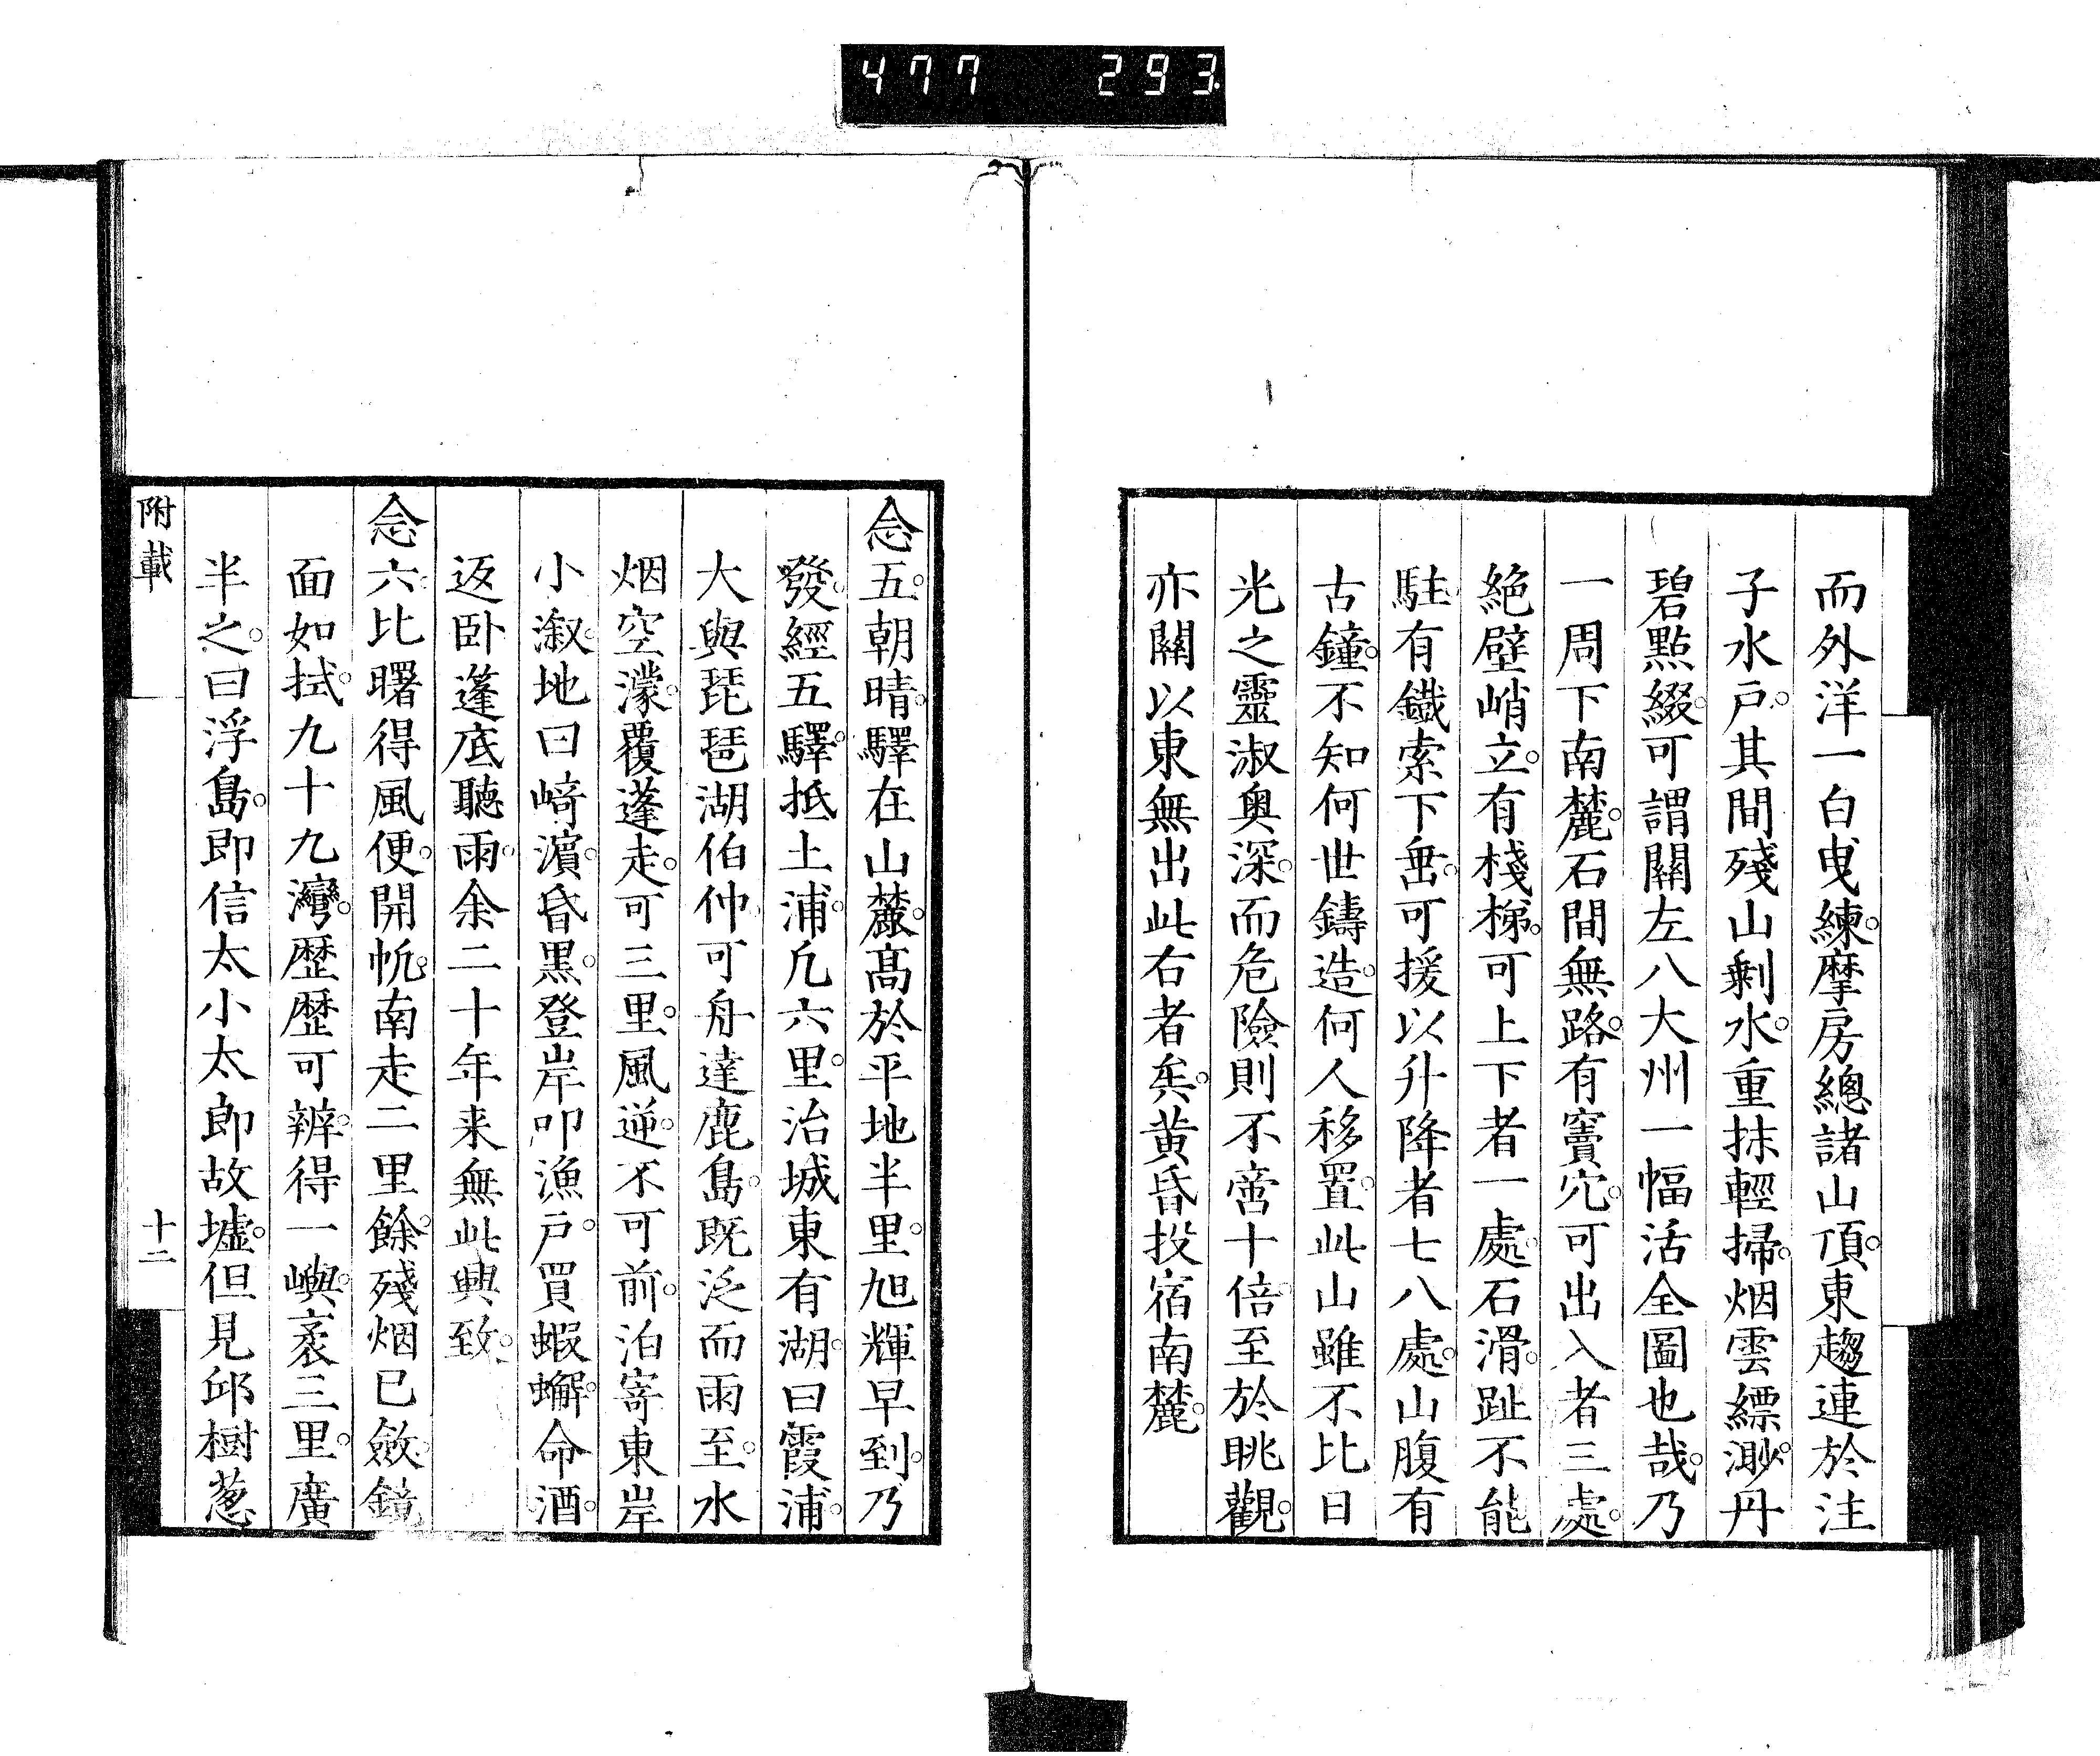 477 293
而外洋一白曳練。摩房總諸山頂。東趨連於注
子水戸。其間殘山剩水。重抹輕掃。烟雲縹渺。丹
碧點綴。可謂關左八大州一幅活全圖也哉。乃
一周下南麓。石間無路。有竇穴。可出入者三處。
絶壁峭立。有棧梯。可上下者一處。石滑。趾不能
駐。有鐵索下垂。可援以升降者七八處。山腹有
古鐘。不知何世鑄造。何人移置。此山雖不比日
光之靈淑奥深。而危險則不啻十倍。至於眺觀。
亦關以東無出此右者矣。黄昏投宿南麓。
念五。朝晴。驛在山麓。高於平地半里。旭輝早到。乃
發。經五驛。抵土浦。凡六里。治城東有湖。曰霞浦。
大與琵琶湖伯仲。可舟達鹿島。既泛而雨至。水
烟空濛。覆蓬走。可三里。風逆。不可前。泊寄東岸
小溆。地曰崎濵。昏黒。登岸叩漁戸。買蝦蠏。命酒。
返卧蓬底聽雨。余二十年来無此興致。
念六。比曙得風便。開帆。南走二里餘。殘烟已斂。鏡
面如拭。九十九灣。歴歴可辨。得一嶼。袤三里。廣
半之。曰浮島。即信太小太郎故墟。但見邱樹葱
附載
十二